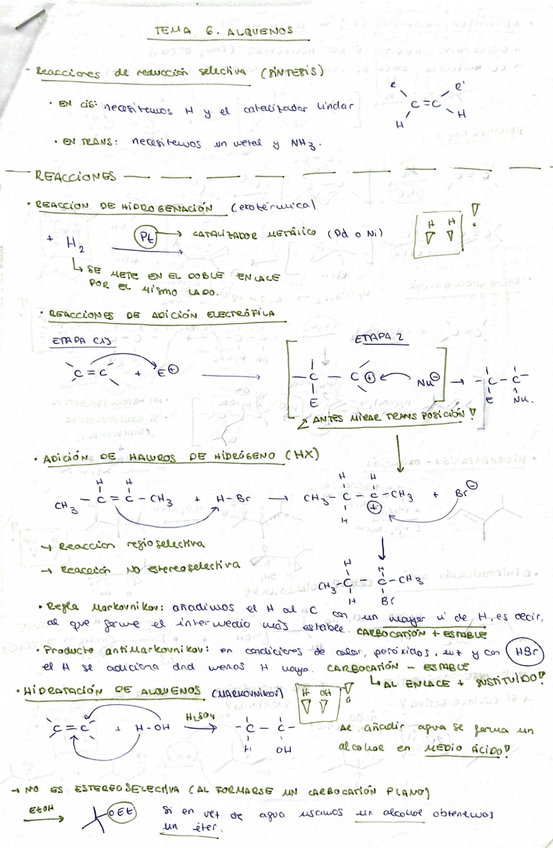 TEMA 6. ALQUENOS
- Reacciones de reducción selectiva (SÍNTESIS)
• EN CIS: necesitamos H y el catalizador Lindlar
R R'
C = C
H H
• EN TRANS: necesitamos un metal y NH3.
REACCIONES
• REACCIÓN DE HIDROGENACIÓN (exotérmica)
+ H2 Pt → CATALIZADOR METÁLICO (Pd o Ni)
H H !
↳ SE METE EN EL DOBLE ENLACE
POR EL MISMO LADO.
• REACCIONES DE ADICIÓN ELECTRÓFILA
ETAPA (1) ETAPA 2
C = C + E⊕ → - C - C⊕ Nu⊖ → - C - C -
E E Nu.
ANTES MIRAR TRANSPOSICIÓN!
• ADICIÓN DE HALUROS DE HIDRÓGENO (HX)
H H H H
CH3 - C = C - CH3 + H - Br → CH3 - C - C - CH3 + Br⊖
H ⊕
→ Reacción regioselectiva
→ Reacción NO estereoselectiva
H H
CH3 - C - C - CH3
H Br
• Regla Markovnikov: añadimos el H al C con un mayor nº de H, es decir,
al que forme el intermedio más estable. CARBOCATIÓN + ESTABLE
• Producto antiMarkovnikov: en condiciones de calor, peróxidos, luz y con HBr
el H se adiciona dnd menos H haya. CARBOCATIÓN - ESTABLE
↳ AL ENLACE + SUSTITUIDO!
• HIDRATACIÓN DE ALQUENOS (MARKOVNIKOV) H OH !
C = C + H - OH H2SO4 → - C - C -
H OH
Al añadir agua se forma un
alcohol en MEDIO ÁCIDO!
→ NO ES ESTEREOSELECTIVA (AL FORMARSE UN CARBOCATIÓN PLANO)
EtOH → OEt Si en vez de agua usamos un alcohol obtenemos
un éter.